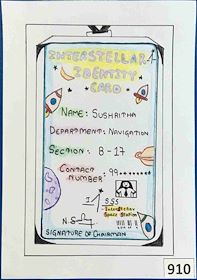 INTERSTELLAR
IDENTITY
CARD
NAME: SUSHRITHA
DEPARTMENT: NAVIGATION
SECTION: B-17
CONTACT
NUMBER: 99
ISSS
Interstellar
Space Station
SIGNATURE OF CHAIRMAN
910